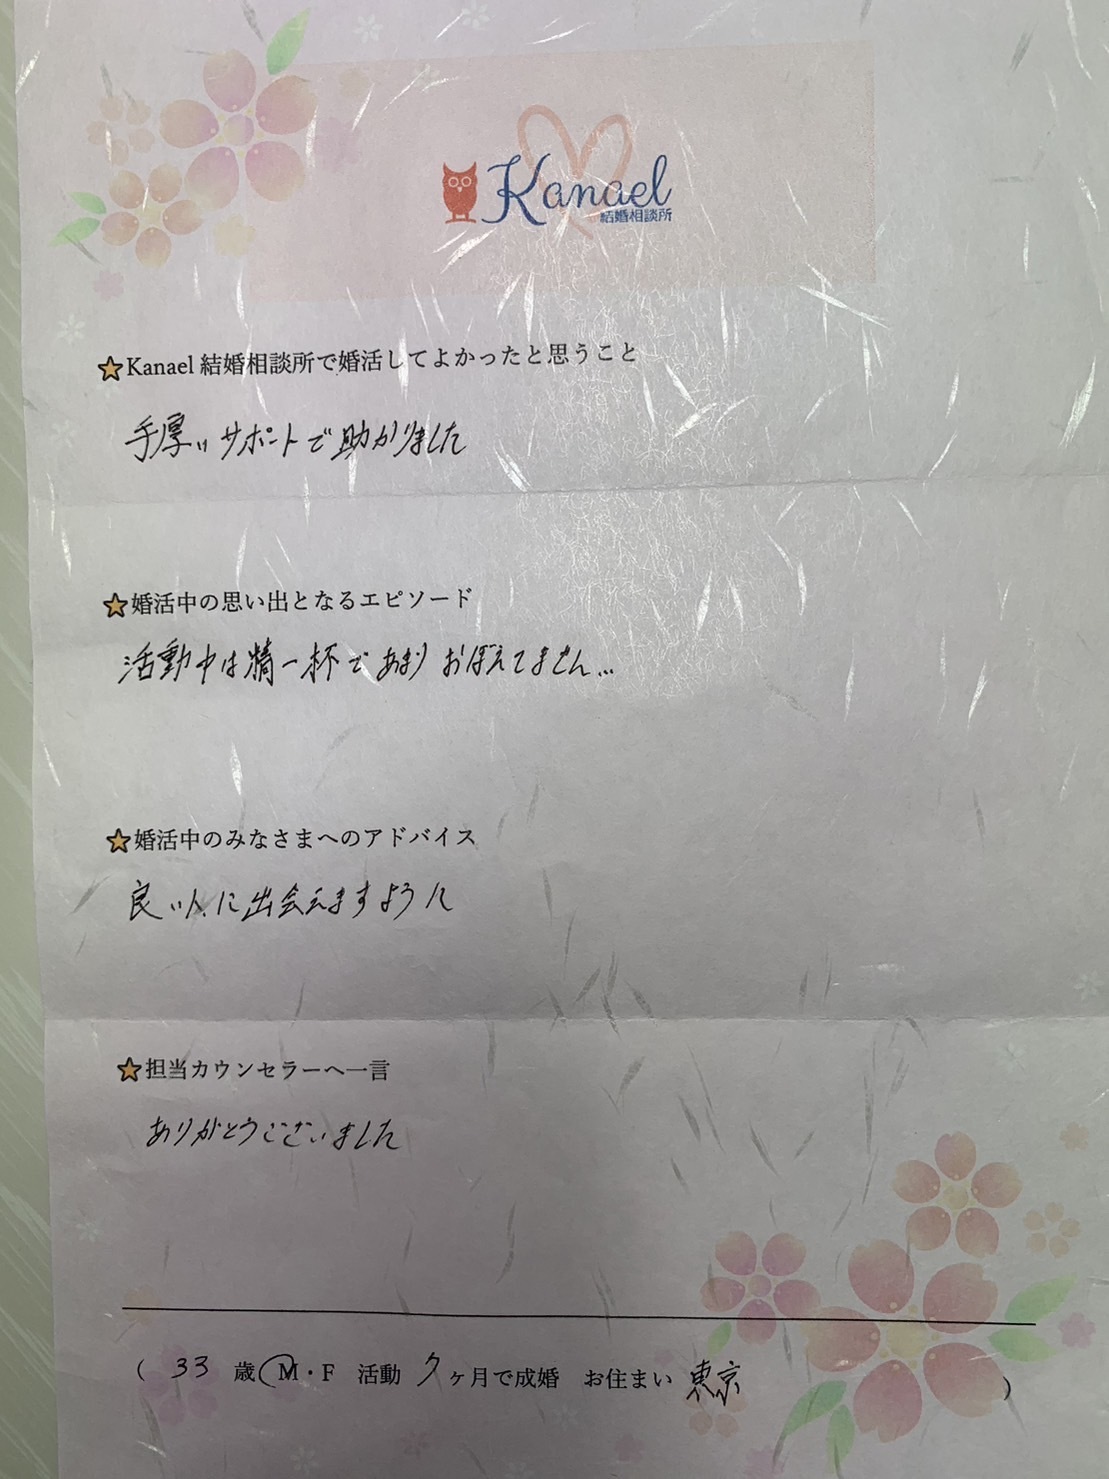 Kanael
結婚相談所
Kanael 結婚相談所で婚活してよかったと思うこと
手厚いサポートで助かりました
婚活中の思い出となるエピソード
活動中は精一杯であまりおぼえてません…
婚活中のみなさまへのアドバイス
良い人に出会えますように
担当カウンセラーへ一言
ありがとうございました
( 33 歳 M・F 活動 7ヶ月で成婚 お住まい 東京 )